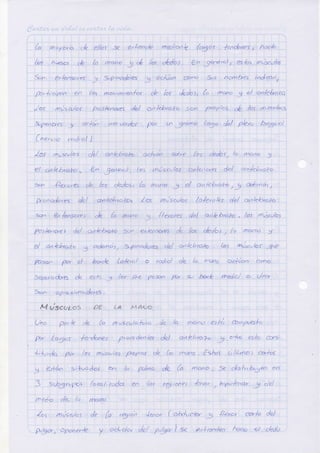 la mayoría de ellos se extiende mediante largos tendones, hasta
los huesos de la mano y de los dedos. En general, estos músculos
son extensores y supinadores y actúan como sus nombres indican,
participan en los movimientos de los dedos, la mano y el antebrazo
Los músculos posteriores del antebrazo son propios de los miembros
superiores y están inervados por un grueso largo del plexo braquial
(nervio radial)
Los músculos del antebrazo actúan sobre los dedos, la mano y
el antebrazo. En general los músculos anteriores del antebrazo
son flexores de los dedos, la mano y el antebrazo, y además,
pronadores del antebrazo. Los músculos laterales del antebrazo
son extensores de la mano y flexores del antebrazo, los músculos
posteriores del antebrazo son extensores de los dedos, la mano y
el antebrazo y además, supinadores del antebrazo. Los músculos que
pasan por el borde lateral o radial de la mano actúan como
separadores de esta y los que pasan por su borde medial o ulnar
son aproximadores.
MÚSCULOS DE LA MANO
Una parte de la musculatura de la mano está compuesta
por largos tendones, procedentes del antebrazo y otra está consti-
tituida por los músculos propios de la mano. Estos últimos cortos
y están situados en la palma de la mano, se distribuyen en
3 subgrupos localizados en las regiones tenar, hipotenar y del
medio de la mano
Los músculos de la región tenar (abductor y flexor corto del
pulgar, oponente y aductor del pulgar) se extienden hasta el dedo